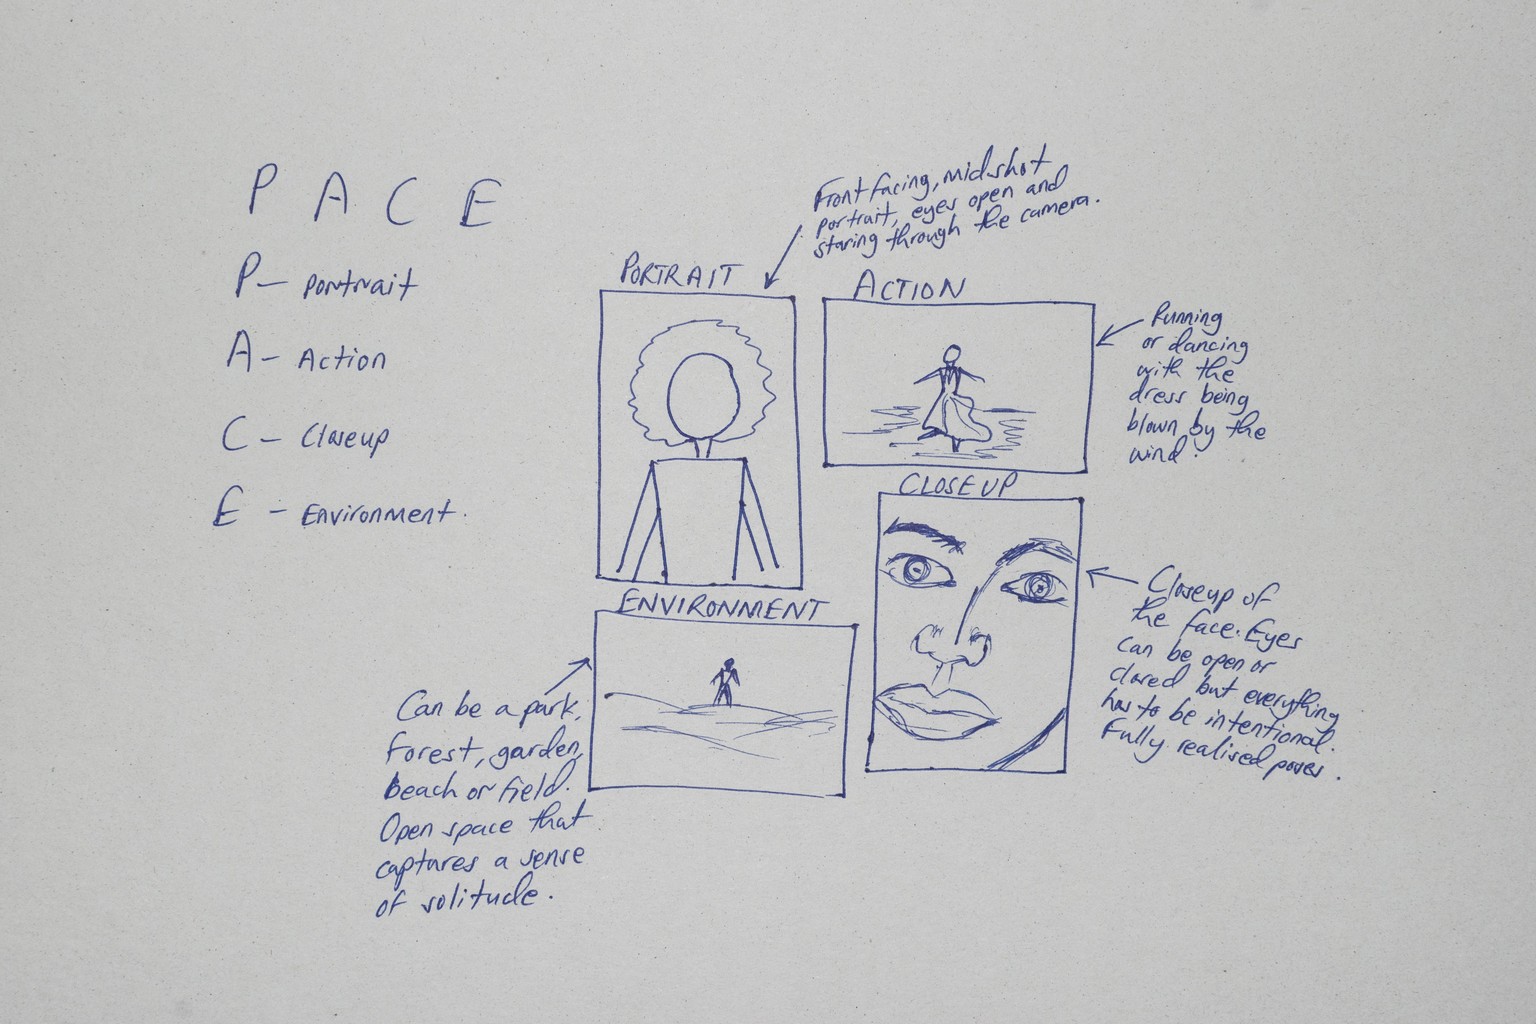 P A C E
P - Portrait
A - Action
C - Closeup
E - Environment.
Front facing, mid-shot
portrait, eyes open and
staring through the camera.
PORTRAIT
ACTION
Running
or dancing
with the
dress being
blown by the
wind.
CLOSEUP
Closeup of
the face. Eyes
can be open or
closed but everything
has to be intentional.
Fully realised poses.
ENVIRONMENT
Can be a park,
forest, garden,
beach or field.
Open space that
captures a sense
of solitude.